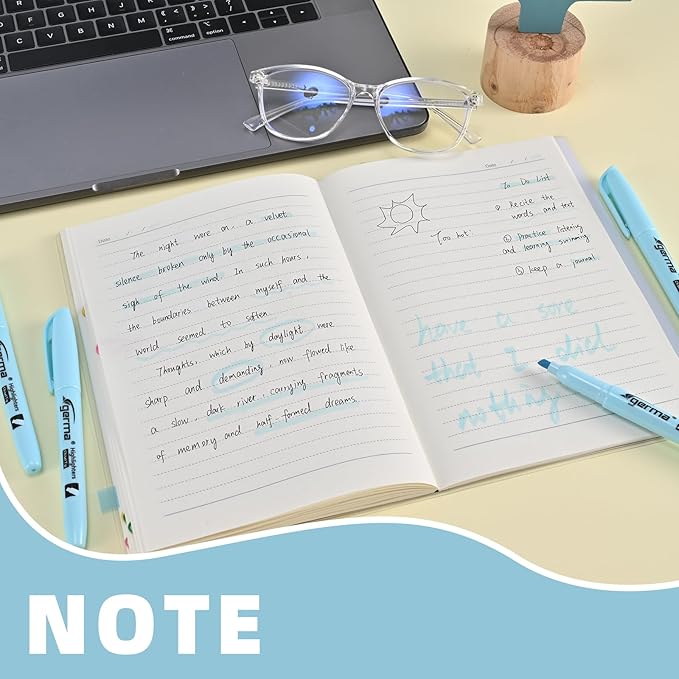 control
option
command
⌘
⌥
Date
The night wore on, a velvet
silence broken only by the occasional
sigh of the wind. In such hours,
the boundaries between myself and the
world seemed to soften.
Thoughts, which by daylight were
sharp and demanding, now flowed like
a slow, dark river, carrying fragments
of memory and half-formed dreams.
Date
To Do List
① Recite the
words and text
② practice listening
and learning swimming
③ keep a journal
Too hot.
have a sore
that I died
nothing
germa
Highlighters
germa
Highlighters
germa
germa
NOTE